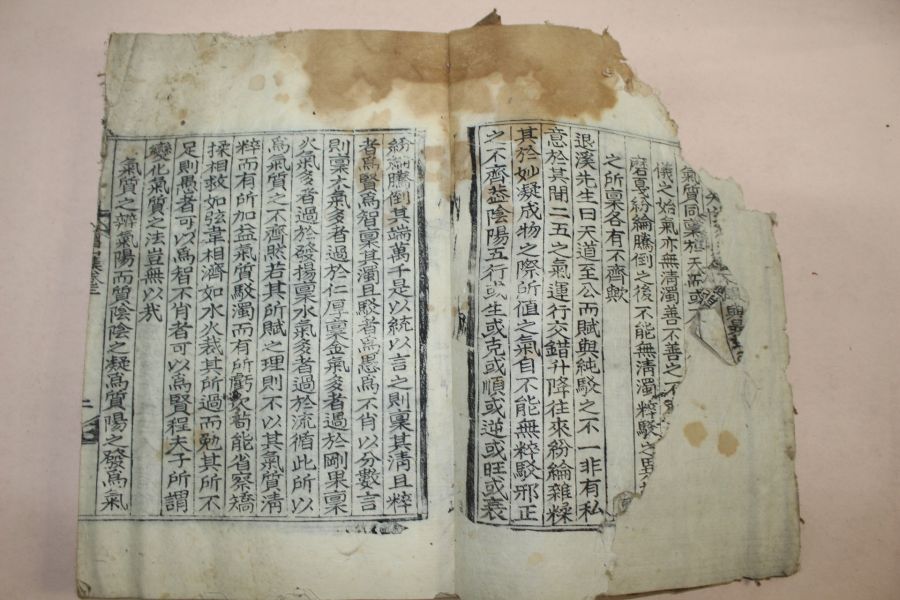 氣質同稟於天而或
儀之始氣亦無淸濁善不善之
磨戛紛綸騰倒之後不能無淸濁粹駁之異
之所稟各有不齊歟
退溪先生曰天道至公而賦與純駁之不一非有私
意於其間二五之氣運行交錯升降往來紛綸雜糅
其於妙凝成物之際所値之氣自不能無粹駁邪正
之不齊盖陰陽五行或生或克或順或逆或旺或衰
紛綸騰倒其端萬千是以統以言之則稟其淸且粹
者爲賢爲智稟其濁且駁者爲愚爲不肖以分數言
則稟木氣多者過於仁厚稟金氣多者過於剛果稟
火氣多者過於發揚稟水氣多者過於流循此所以
爲氣質之不齊然若其所賦之理則不以其氣質淸
粹而有所加益氣質駁濁而有所虧欠苟能省察矯
揉相救如弦韋相濟如水火裁其所過而勉其所不
足則愚者可以爲智不肖者可以爲賢程夫子所謂
變化氣質之法豈無以哉
氣質之辨氣陽而質陰陰之凝爲質陽之發爲氣
二